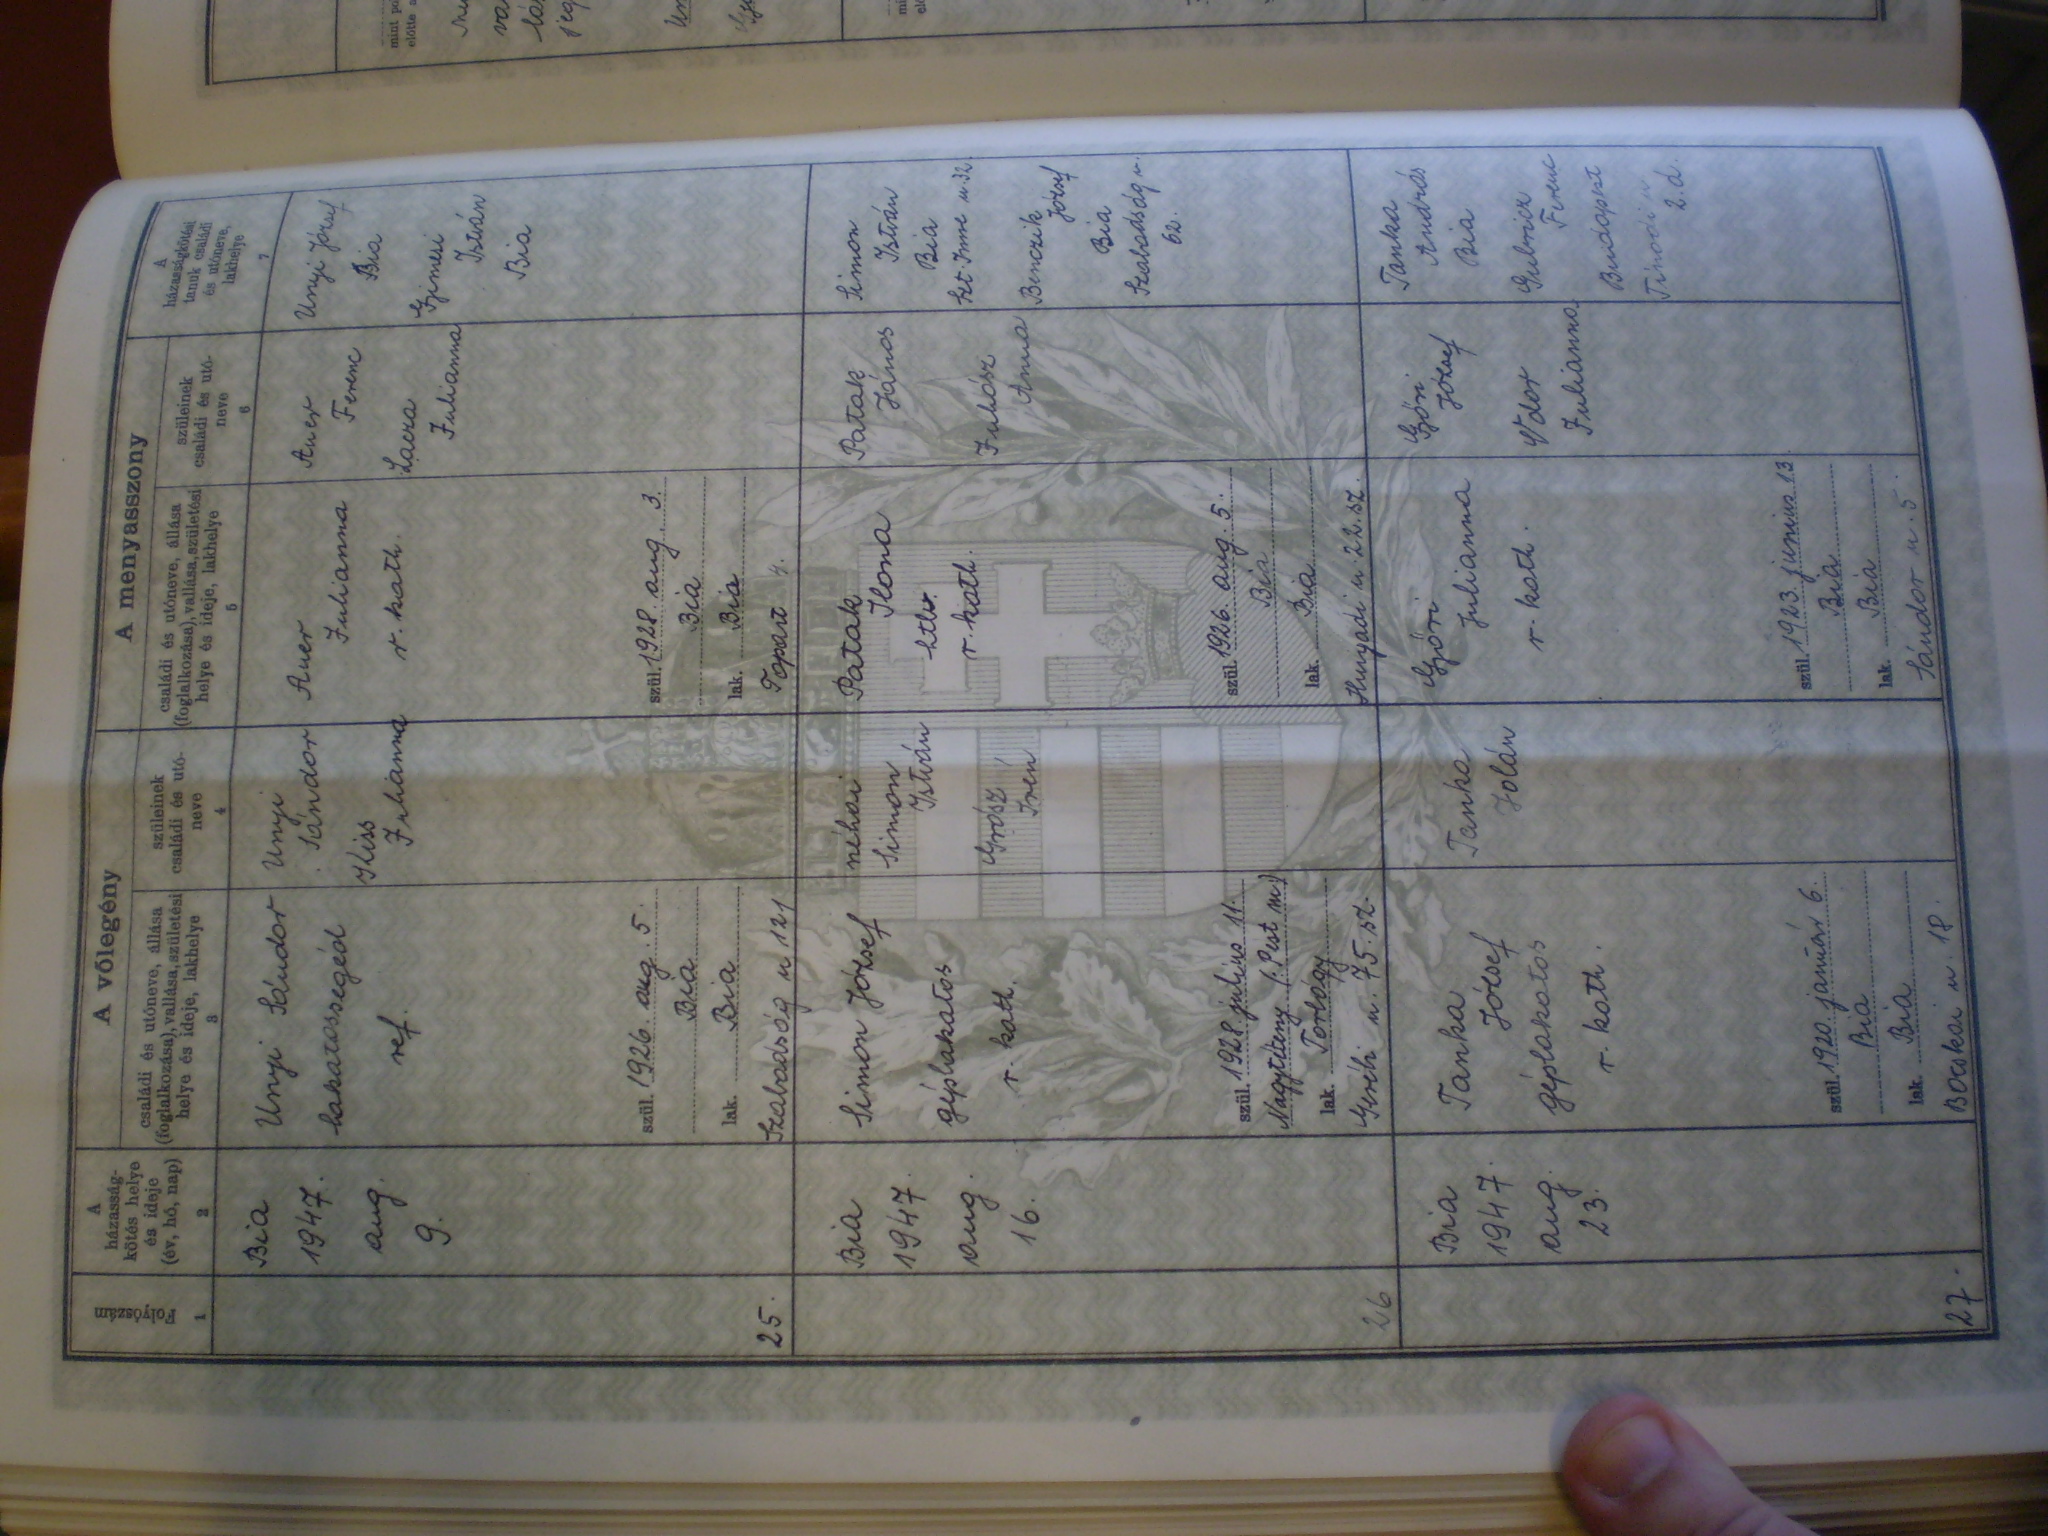 A vőlegény
A menyasszony
Folyószám
1
A
házasság-
kötés helye
és ideje
(év, hó, nap)
2
családi és utóneve, állása
(foglalkozása), vallása, születési
helye és ideje, lakhelye
3
szüleinek
családi és utó-
neve
4
családi és utóneve, állása
(foglalkozása), vallása, születési
helye és ideje, lakhelye
5
szüleinek
családi és utó-
neve
6
A
házasságkötési
tanuk családi
és utóneve,
lakhelye
7
25.
Bia
1947.
aug.
9.
Unyi Sándor
lakatossegéd
ref.
szül. 1926. aug. 5.
Bia
lak. Bia
Szabadság u 121
Unyi
Sándor
Kiss
Julianna
Auer
Julianna
r. kath.
szül. 1928. aug. 3.
Bia
lak. Bia
Topart 4.
Auer
Ferenc
Lacza
Julianna
Unyi József
Bia
István
Bia
26
Bia
1947
aug.
16.
Simon József
géplakatos
r. kath.
szül. 1928. július 11.
Nagytétény (Pest m.)
lak. Torbágy
u. 75. sz.
néhai
Simon
István
Grósz
Irén
Patak
Ilona
htb.
r. kath.
szül. 1926. aug. 5.
Bia
lak. Bia
Hunyadi u. 22. sz.
Patak
János
Juhász
Anna
Simon
István
Bia
Szt. Imre u. 32.
Benczik
József
Bia
Szabadság u.
62.
27.
Bia
1947
aug
23.
Tanka
József
géplakatos
r. kath.
szül. 1920. január 6.
Bia
lak. Bia
Bocskai u. 18.
Tanka
Jolán
Győri
Julianna
r. kath.
szül. 1923. június 13.
Bia
lak. Bia
Sándor u. 5.
Győri
József
Vdor
Julianna
Tanka
András
Bia
Gubricz
Ferenc
Budapest
Tinódi u
2.d.